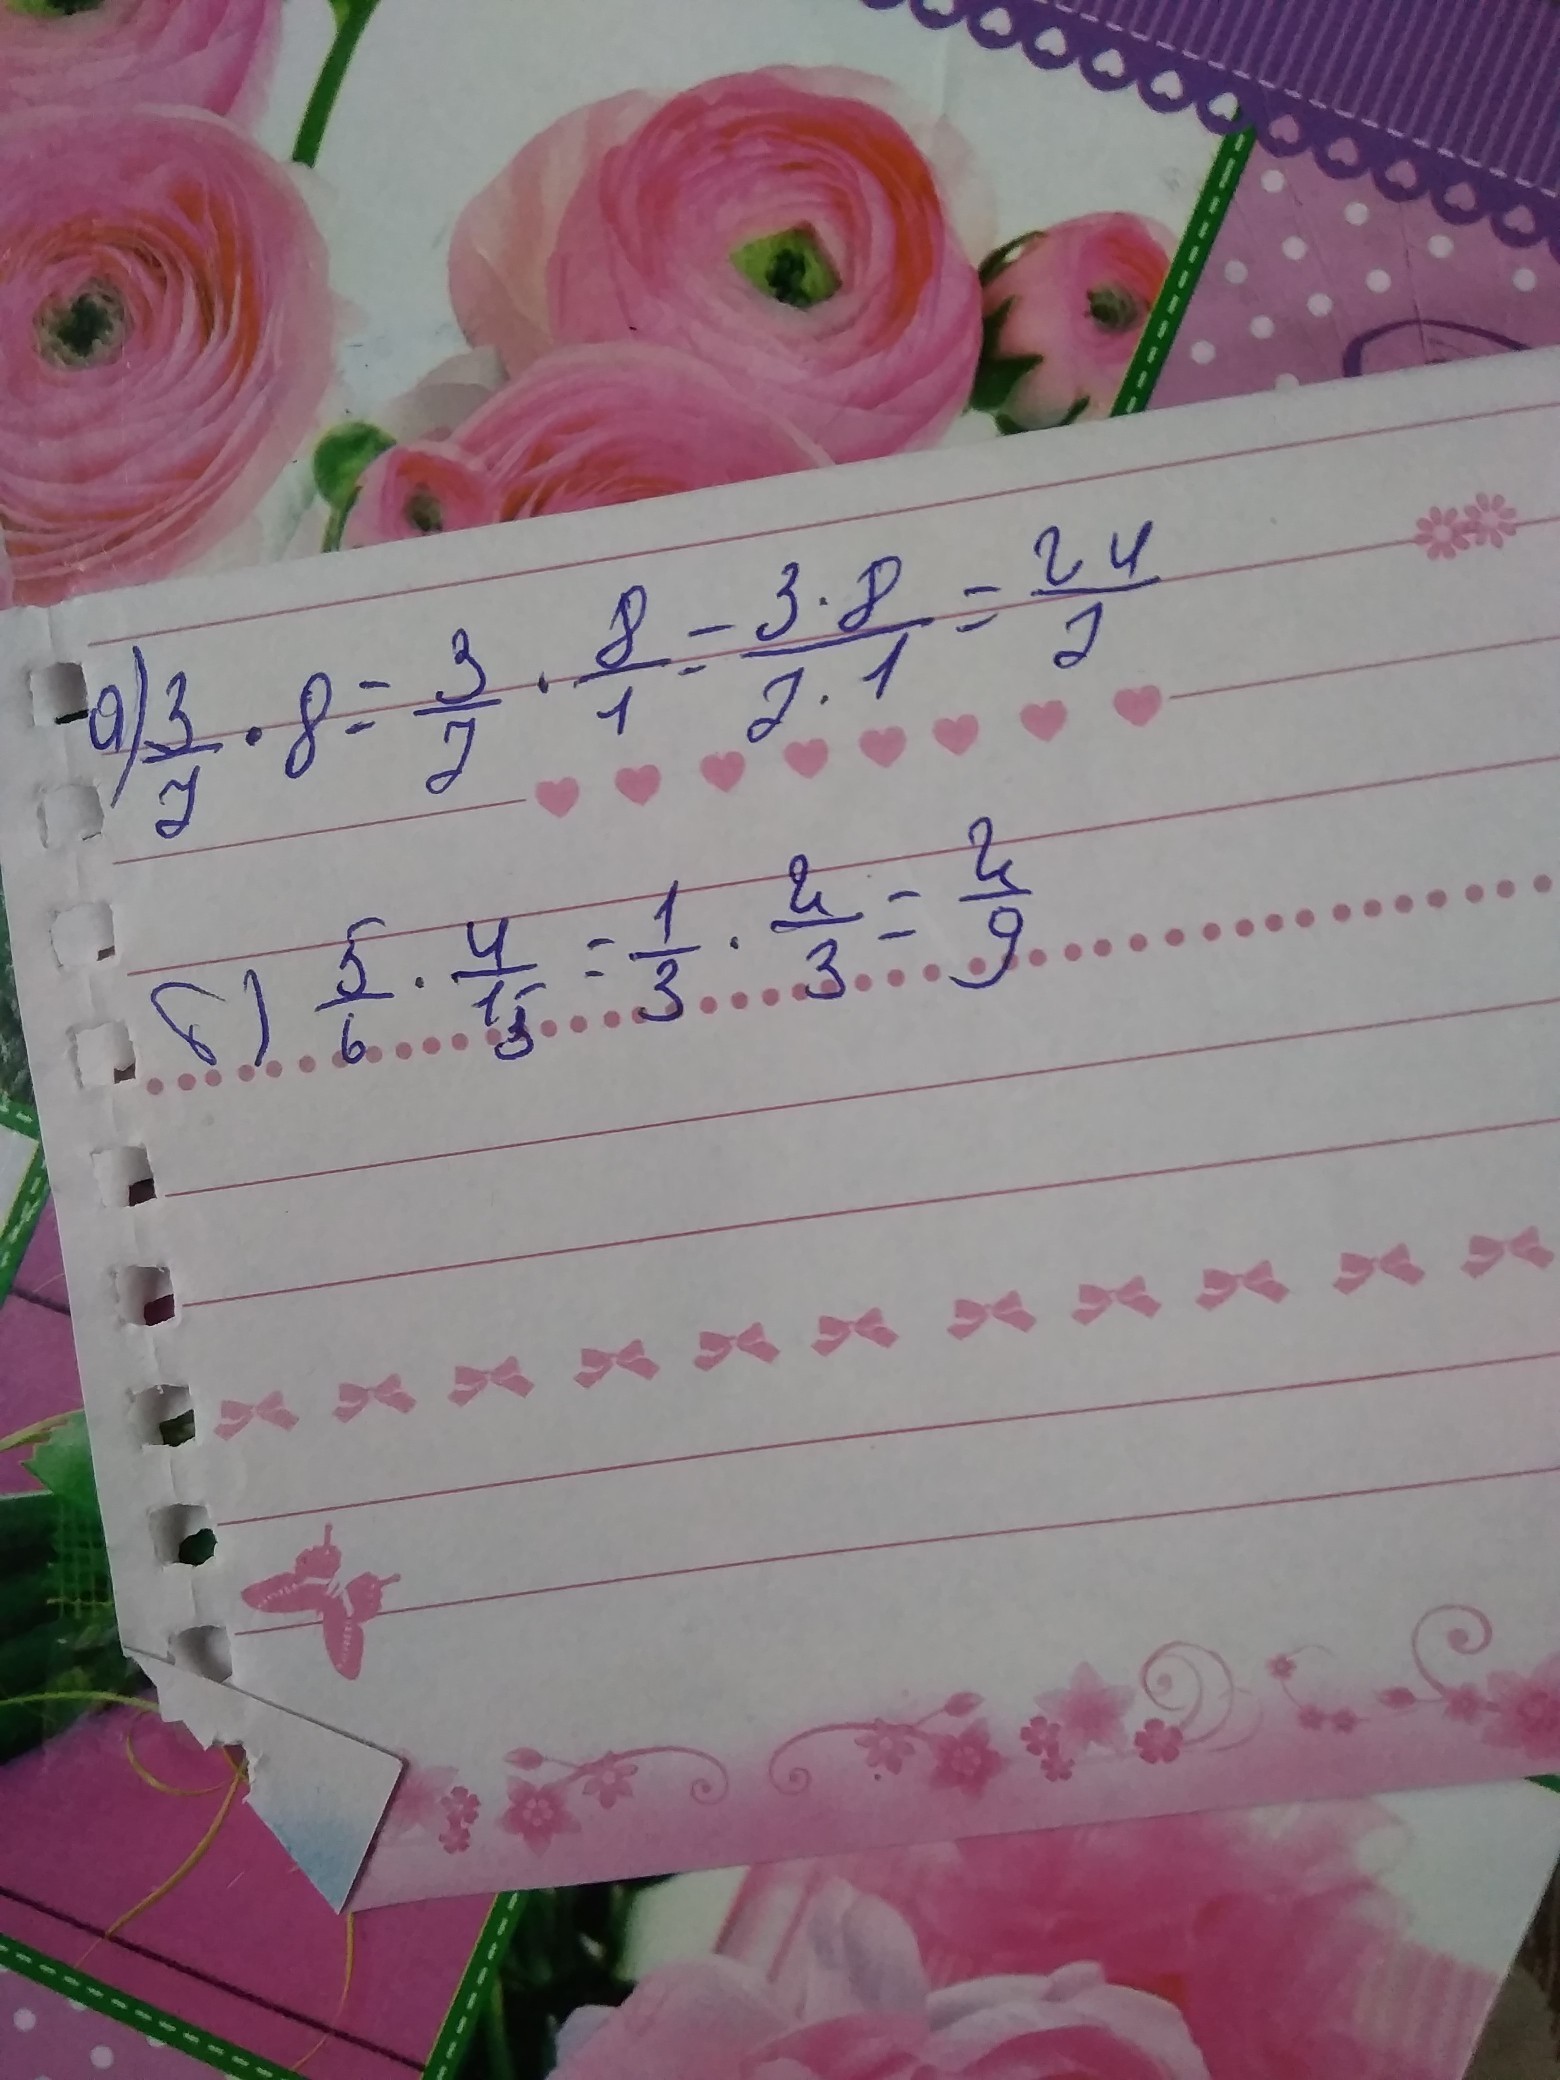 а) 3/7 · 8 = 3/7 · 8/1 = 3·8/7·1 = 24/7
б) 5/6 · 4/15 = 1/3 · 2/3 = 2/9
3